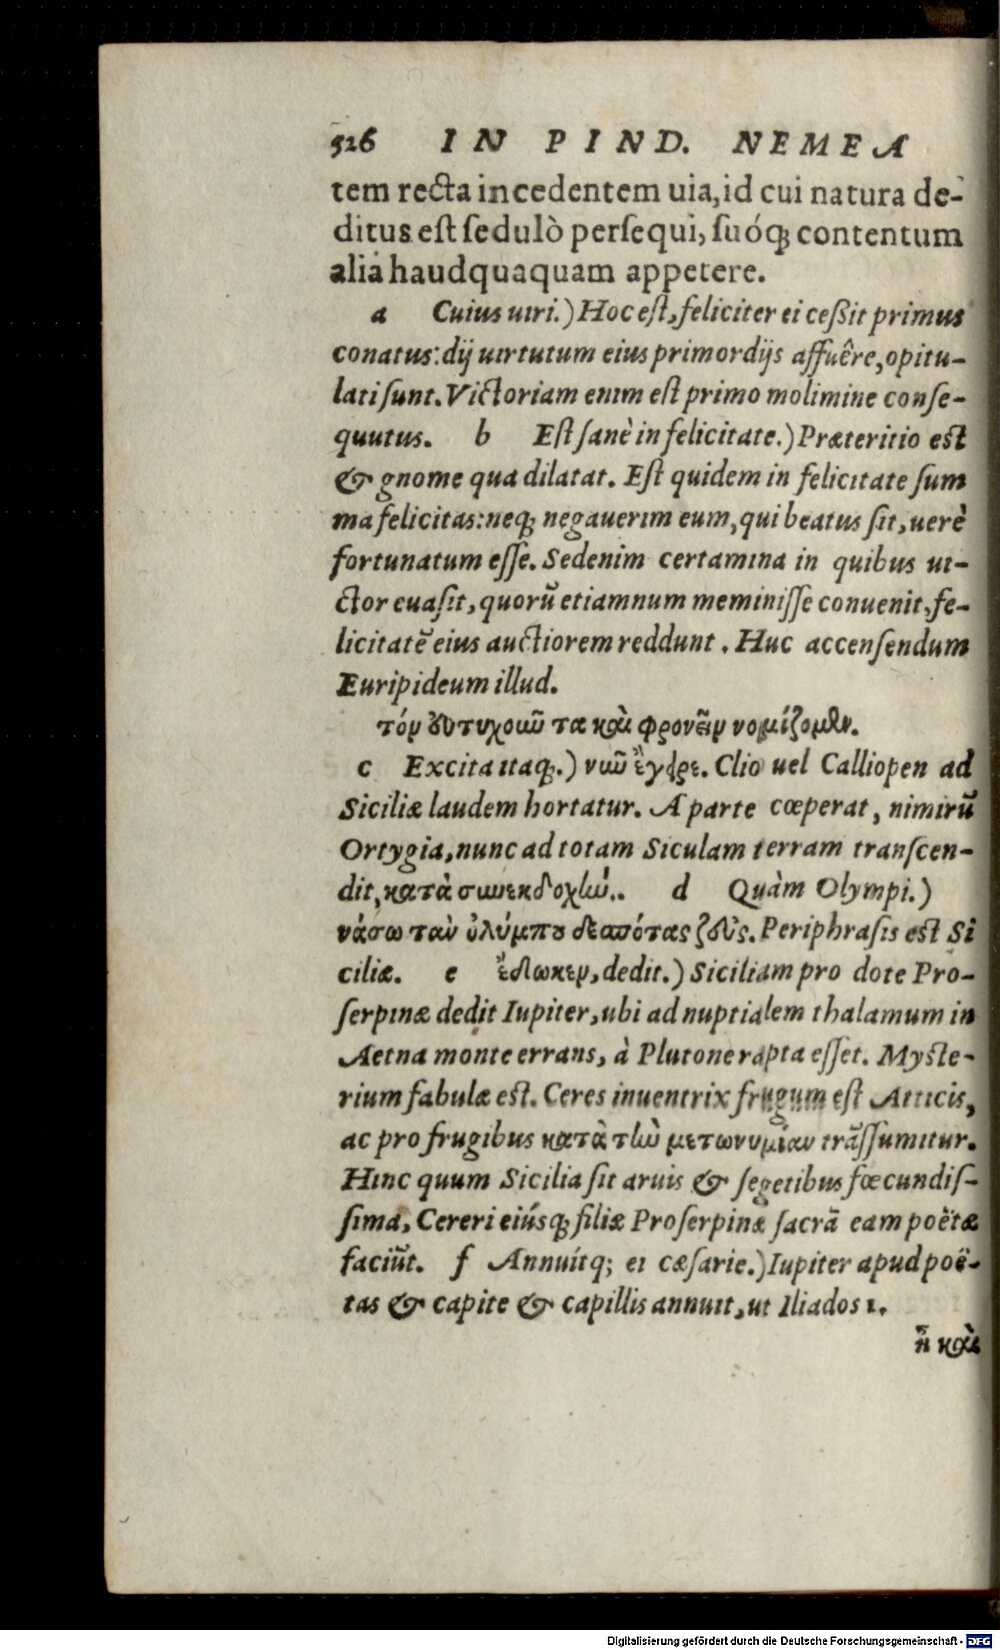 526 IN PIND. NEMEA
tem recta incedentem uia, id cui natura de-
ditus est sedulò persequi, suóq; contentum
alia haudquaquam appetere.
a Cuius uiri.) Hoc est, feliciter ei ceßit primus
conatus: dij uirtutum eius primordijs affuêre, opitu-
lati sunt. Victoriam enim est primo molimine conse-
quutus. b Est sanè in felicitate.) Præteritio est
& gnome qua dilatat. Est quidem in felicitate sum
ma felicitas: neq; negauerim eum, qui beatus sit, uerè
fortunatum esse. Sedenim certamina in quibus ui-
ctor euasit, quorũ etiamnum meminisse conuenit, fe-
licitatẽ eius auctiorem reddunt. Huc accensendum
Euripideum illud.
τόν ευτυχοιῶ τα καὶ φρονεῖν νομίζομεν.
c Excita itaq;.) νῦν ἔγειρε. Clio uel Calliopen ad
Siciliæ laudem hortatur. A parte cœperat, nimirũ
Ortygia, nunc ad totam Siculam terram transcen-
dit, κατὰ συνεκδοχὴν. d Quàm Olympi.)
νάσω τὰν ὀλύμπου δεσπότας ζεὺς. Periphrasis est Si
ciliæ. e ἔδωκεν, dedit.) Siciliam pro dote Pro-
serpinæ dedit Iupiter, ubi ad nuptialem thalamum in
Aetna monte errans, à Plutone rapta esset. Myste-
rium fabulæ est. Ceres inuentrix frugum est Atticis,
ac pro frugibus κατὰ τὴν μετωνυμίαν trãssumitur.
Hinc quum Sicilia sit aruis & segetibus fœcundis-
sima, Cereri eiúsq; filiæ Proserpinæ sacrã eam poëtæ
faciũt. f Annuítq; ei cæsarie.) Iupiter apud poë-
tas & capite & capillis annuit, ut Iliados 1.
ἦ καὶ
Digitalisierung gefördert durch die Deutsche Forschungsgemeinschaft - DFG